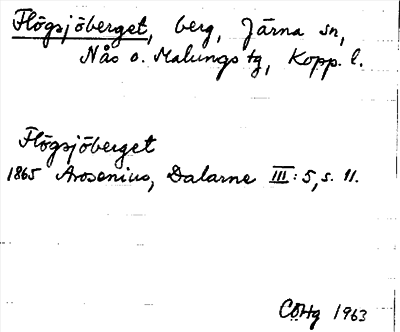 Flögsjöberget, berg, Järna sn,
Nås o. Malungs tg, Kopp. l.
Flögsjöberget
1865 Arosenius, Dalarne III: 5, s. 11.
CÖHg 1963